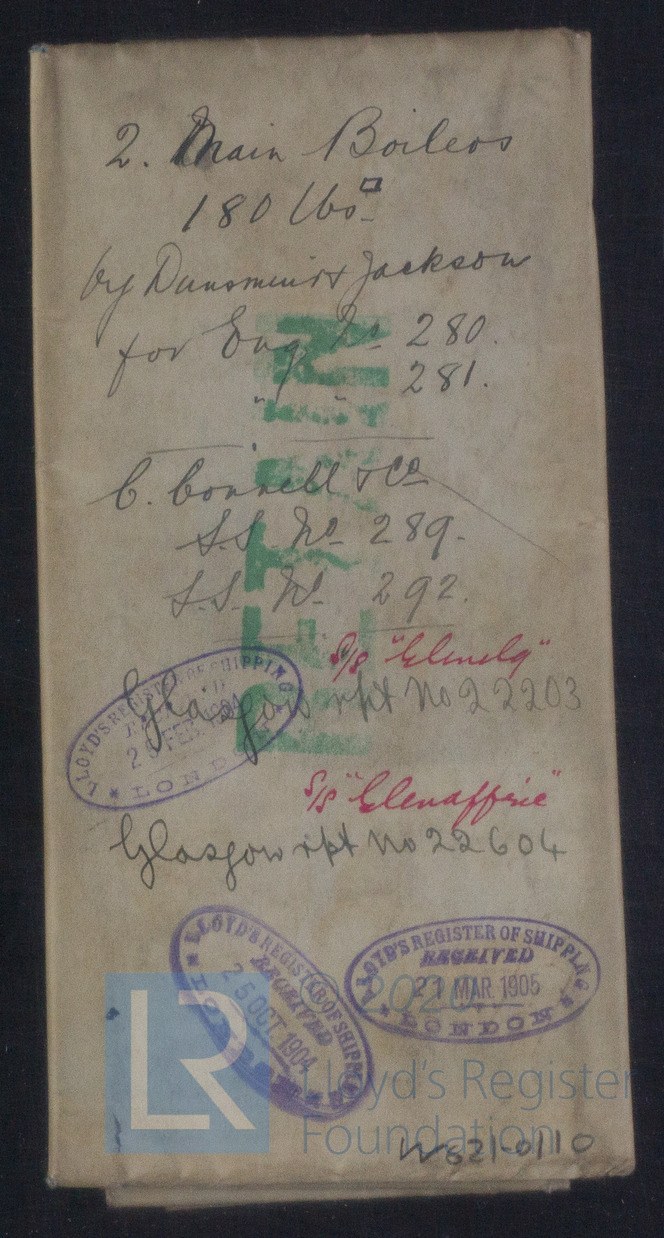 2. Main Boilers
180 lbs □
by Dunsmuir & Jackson
for Eng No 280.
" " 281.
C. Connell & Co
S.S. No 289.
S.S. No 292.
RETAIN
S/S "Glenelg"
Glasgow rpt No 22203
LLOYD'S REGISTER OF SHIPPING
FEB. 1904
LONDON
S/S "Glenaffric"
Glasgow rpt No 22604
LLOYD'S REGISTER OF SHIPPING
RECEIVED
25 OCT 1904
LONDON
LLOYD'S REGISTER OF SHIPPING
RECEIVED
21 MAR. 1905
LONDON
LR
© 2020
Lloyd's Register
Foundation
W621-0110